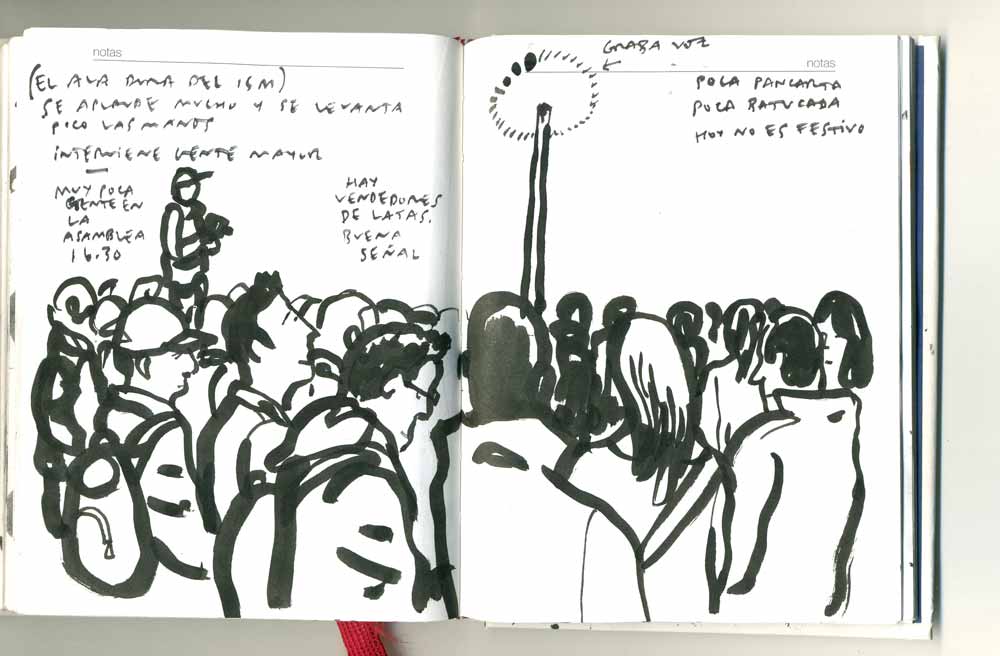 notas
(EL ALA DURA DEL 15M)
SE APLAUDE MUCHO Y SE LEVANTA
POCO LAS MANOS
INTERVIENE GENTE MAYOR
MUY POCA
GENTE EN
LA
ASAMBLEA
16.30
HAY
VENDEDORES
DE LATAS.
BUENA
SEÑAL
GRABA VOZ
notas
POCA PANCARTA
POCA BATUCADA
HOY NO ES FESTIVO